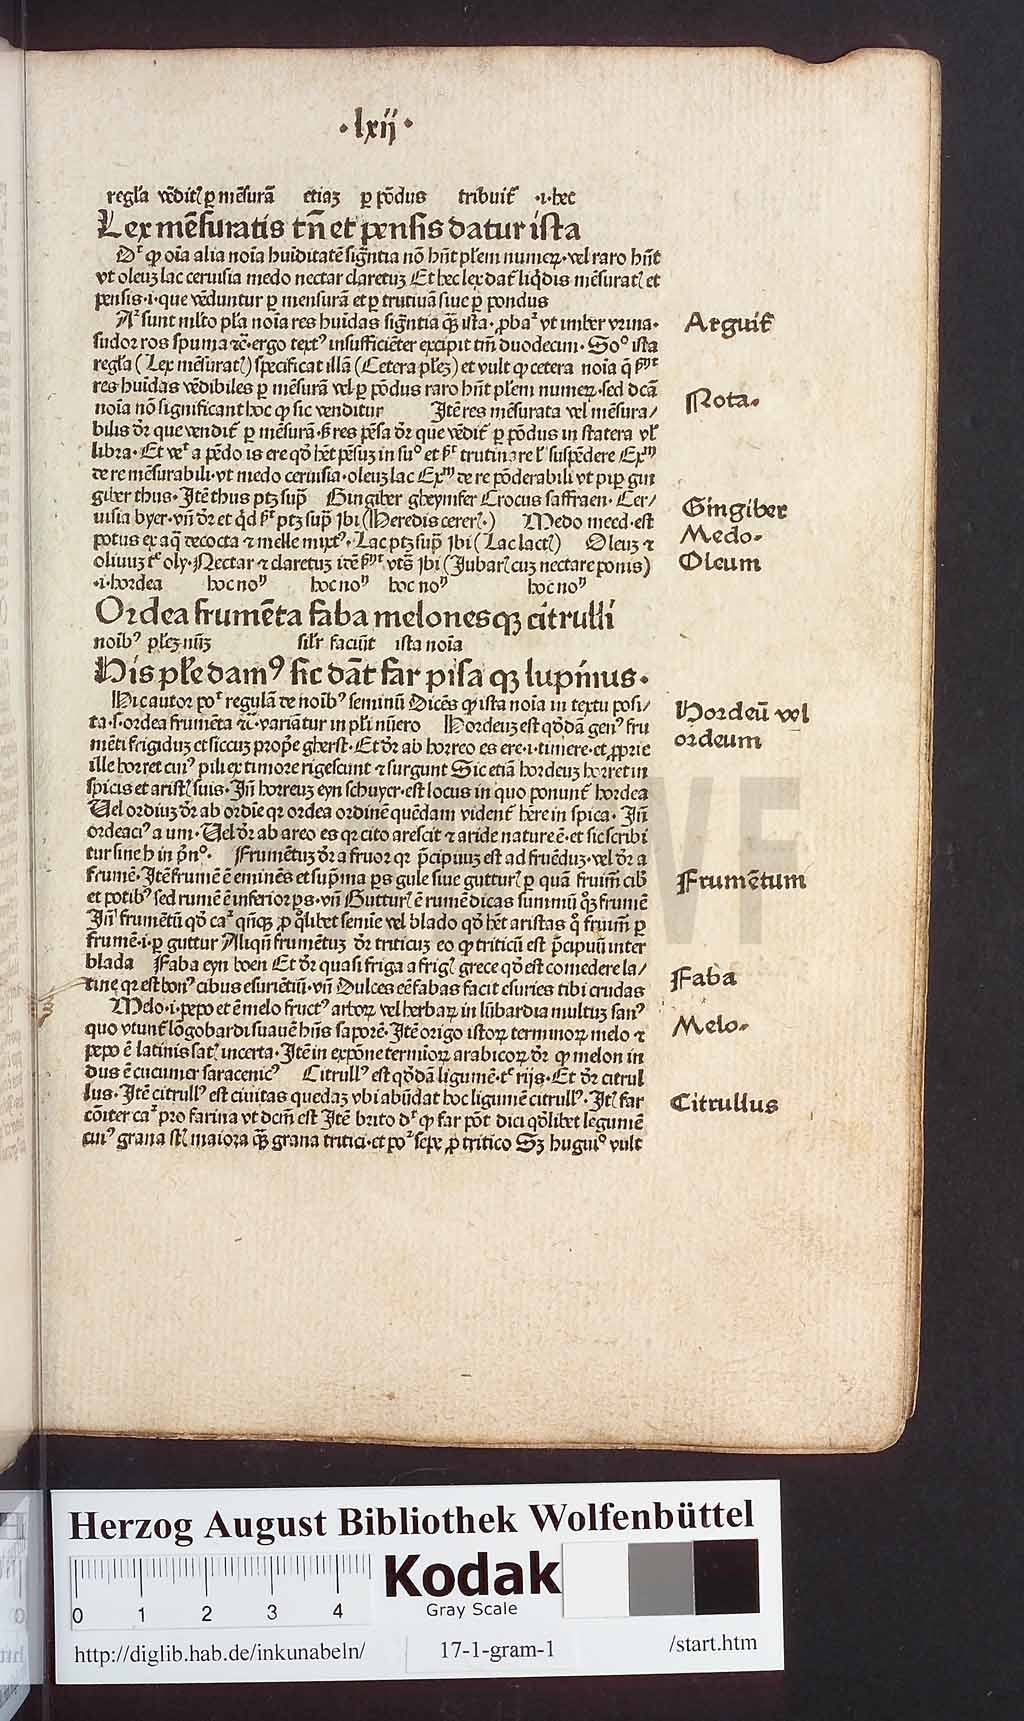 ·lxij·
regl̃a vẽditꝭ ꝑ mẽsurã etiaꝫ ꝑ põdus tribuit̃ ·i·hec
Lex mẽsuratis tñ et pensis datur ista
Dʳ ꝙ oĩa alia noĩa huĩditatẽ signᷓntia nõ hñt pl̃em numeꝝ·vel raro hñt
vt oleuꝫ lac ceruisia medo nectar claretuꝫ Et hec lex dat̃ liq̃dis mẽsuratꝭ et
pensis·i·que vẽduntur ꝑ mensurã et ꝑ trutinã siue ꝑ pondus
Aʳ sunt mĺto pl̃a noĩa res huĩdas signᷓntia qᷓꝫ ista·ꝓbaʳ vt imber vrina·
sudor ros spuma ⁊c̃·ergo textꝰ insufficiẽter excipit tm̃ duodecim·Soᵒ ista
regl̃a (Lex mẽsuratꝭ) specificat illã (Cetera pl̃eꝫ) et vult ꝙ cetera noĩa q̃
res huĩdas vẽdibiles ꝑ mẽsurã vel ꝑ põdus raro hñt pl̃em numeꝝ·sed dcã
noĩa nõ significant hoc ꝙ sic venditur Itẽ res mẽsurata vel mẽsura/
bilis dr̃ que vendit̃ ꝑ mẽsurã· res pẽsa dr̃ que vẽdit̃ ꝑ põdus in statera vĺ
libra·Et veʳ a pẽdo is ere qď hẽt pẽsuꝫ in suᵒ et trutinare ĺ suspẽdere Exᵐ
de re mẽsurabili·vt medo ceruisia·oleuꝫ lac Exᵐ de re põderabili vt pipꝑ gin
giber thus·Itẽ thus ptꝫ supᷓ Gingiber gheymfer Crocus saffraen·Cer/
uisia byer·vñ dr̃ et ptꝫ supᷓ Ibi (Heredis cererꝭ·) Medo meed·est
potus ex aq̃ decocta ⁊ melle mixtꝰ·Lac ptꝫ supᷓ Ibi (Lac lactꝭ) Oleuꝫ ⁊
oliuuꝫ oly·Nectar ⁊ claretuꝫ itẽ Ibi (Iubarꝭ cuꝫ nectare ponis)
·i·hordea hoc noⁿ hoc noⁿ hoc noⁿ hoc noⁿ
Ordea frumẽta faba melonesqꝫ citrulli
noĩbꝰ pl̃eꝫ nũꝫ silr̃ faciũt ista noĩa
His pl̃e damꝰ sic dãt far pisa qꝫ lupinus·
Hic autor poʳ regulã de noĩbꝰ seminũ Dicẽs ꝙ ista noĩa in textu posi/
ta·s·ordea frumẽta ⁊c̃·variãtur in pl̃i nũero Hordeuꝫ est qďdã genꝰ fru
mẽti frigiduꝫ et siccuꝫ prop̃e gherst·Et dr̃ ab horreo es ere·i·timere·et ꝓprie
ille horret cuiꝰ pili ex timore rigescunt ⁊ surgunt Sic etiã hordeuꝫ horret in
spicis et aristꝭ suis·Iñ horreuꝫ eyn schuyer·est locus in quo ponunt̃ hordea
Vel ordiuꝫ dr̃ ab ordĩe qꝛ ordea ordinẽ quẽdam vident̃ hẽre in spica·Iñ
ordeaciꝰ a um·Vel dr̃ ab areo es qꝛ cito arescit ⁊ aride nature ẽ·et sic scribi
tur sine h in pᷓnᵒ· Frumẽtuꝫ dr̃ a fruor qꝛ pᷓcipuuꝫ est ad fruẽduꝫ·vel dr̃ a
frumẽ·Itẽ frumẽ ẽ eminẽs et sup̃ma ꝑs gule siue gutturꝭ ꝑ quã fruim̃ cib̃
et potibꝰ sed rumẽ ẽ inferior ꝑs·vñ Gutturꝭ ẽ rumẽ dicas summũ qͣꝫ frumẽ
Iñ frumẽtũ qď caʳ qñqꝫ ꝓ qͦlibet semĩe vel blado qď hẽt aristas qͦ fruim̃ ꝑ
frumẽ·i·ꝑ guttur Aliqñ frumẽtuꝫ dr̃ triticuꝫ eo ꝙ triticũ est pᷓcipuũ inter
blada Faba eyn boen Et dr̃ quasi friga a frigꝭ grece qď est comedere la/
tine qꝛ est bonꝰ cibus esuriẽtiũ·vñ Dulces eẽ fabas facit esuries tibi crudas
Melo·i·pepo et ẽ melo fructꝰ arboꝝ vel herbaꝝ in lũbardia multuꝫ sanꝰ
quo vtunt̃ lõgobardi suauẽ hñs saporẽ·Itẽ origo istoꝝ terminoꝝ melo ⁊
pepo ẽ latinis satꝭ incerta·Itẽ in expõne termioꝝ arabicoꝝ dr̃ ꝙ melon in
dus ẽ cucumer saracenicꝰ Citrullꝰ est qďdã ligumẽ· rijs·Et dr̃ citrul
lus·Itẽ citrullꝰ est ciuitas quedaꝫ vbi abũdat hoc ligumẽ citrullꝰ·Itꝭ far
cõiter caʳ pro farina vt dcm̃ est Itẽ brito dʳ ꝙ far põt dici qďlibet legumẽ
cuiꝰ grana stꝭ maiora qᷓꝫ grana tritici·et poʳ sepe ꝓ tritico Sꝫ huguiᵒ vult
Arguit̃
Nota·
Gingiber
Medo·
Oleum
Hordeũ vel
ordeum
Frumẽtum
Faba
Melo·
Citrullus
Herzog August Bibliothek Wolfenbüttel
0 1 2 3 4
Kodak
Gray Scale
http://diglib.hab.de/inkunabeln/
17-1-gram-1
/start.htm